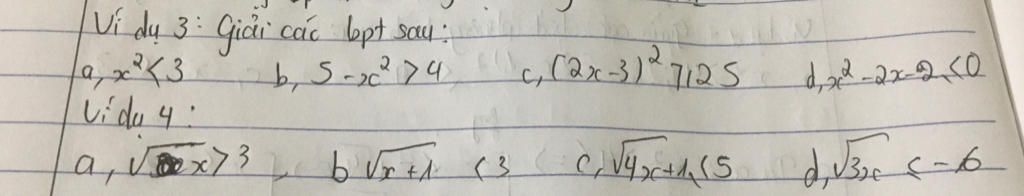 Ví dụ 3: Giải các bpt sau:
a, x² < 3 b, 5 - x² > 4 c, (2x-3)² ⩾ 25 d, x² - 2x - 2 ⩽ 0
Ví dụ 4:
a, √x > 3 b √x+1 < 3 c, √4x+1 ⩽ 5 d, √3x < -6